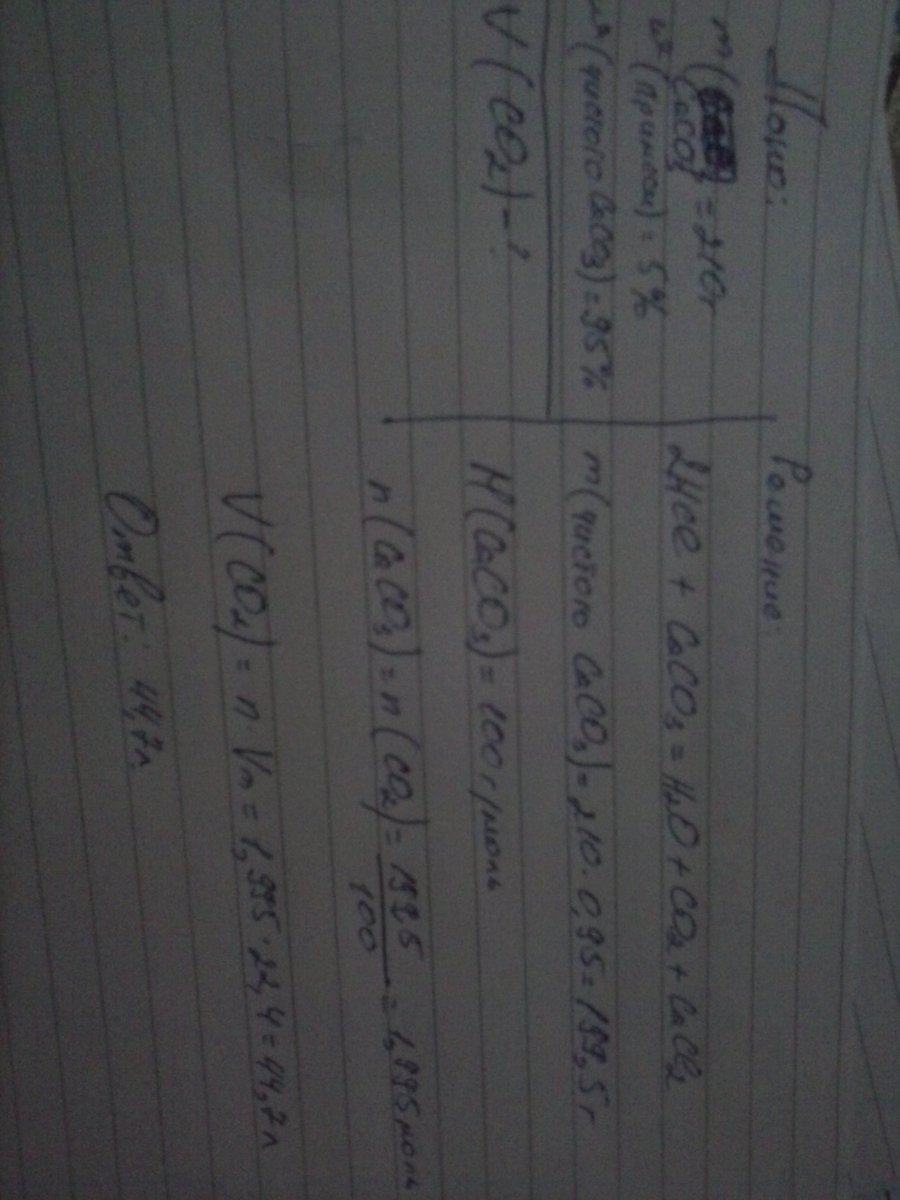 Дано:
m(CaCO3) = 210г
ω(примеси) = 5%
ω(чистого CaCO3) = 95%
V(CO2) - ?
Решение:
2HCl + CaCO3 = H2O + CO2 + CaCl2
m(чистого CaCO3) = 210 · 0,95 = 199,5 г
M(CaCO3) = 100 г/моль
n(CaCO3) = n(CO2) = 199,5 / 100 = 1,995 моль
V(CO2) = n · Vm = 1,995 · 22,4 = 44,7 л
Ответ: 44,7 л